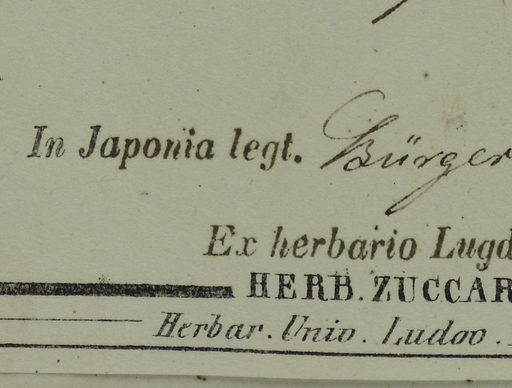 In Japonia legt. Bürger
Ex herbario Lugd
HERB. ZUCCAR
Herbar. Univ. Ludov.